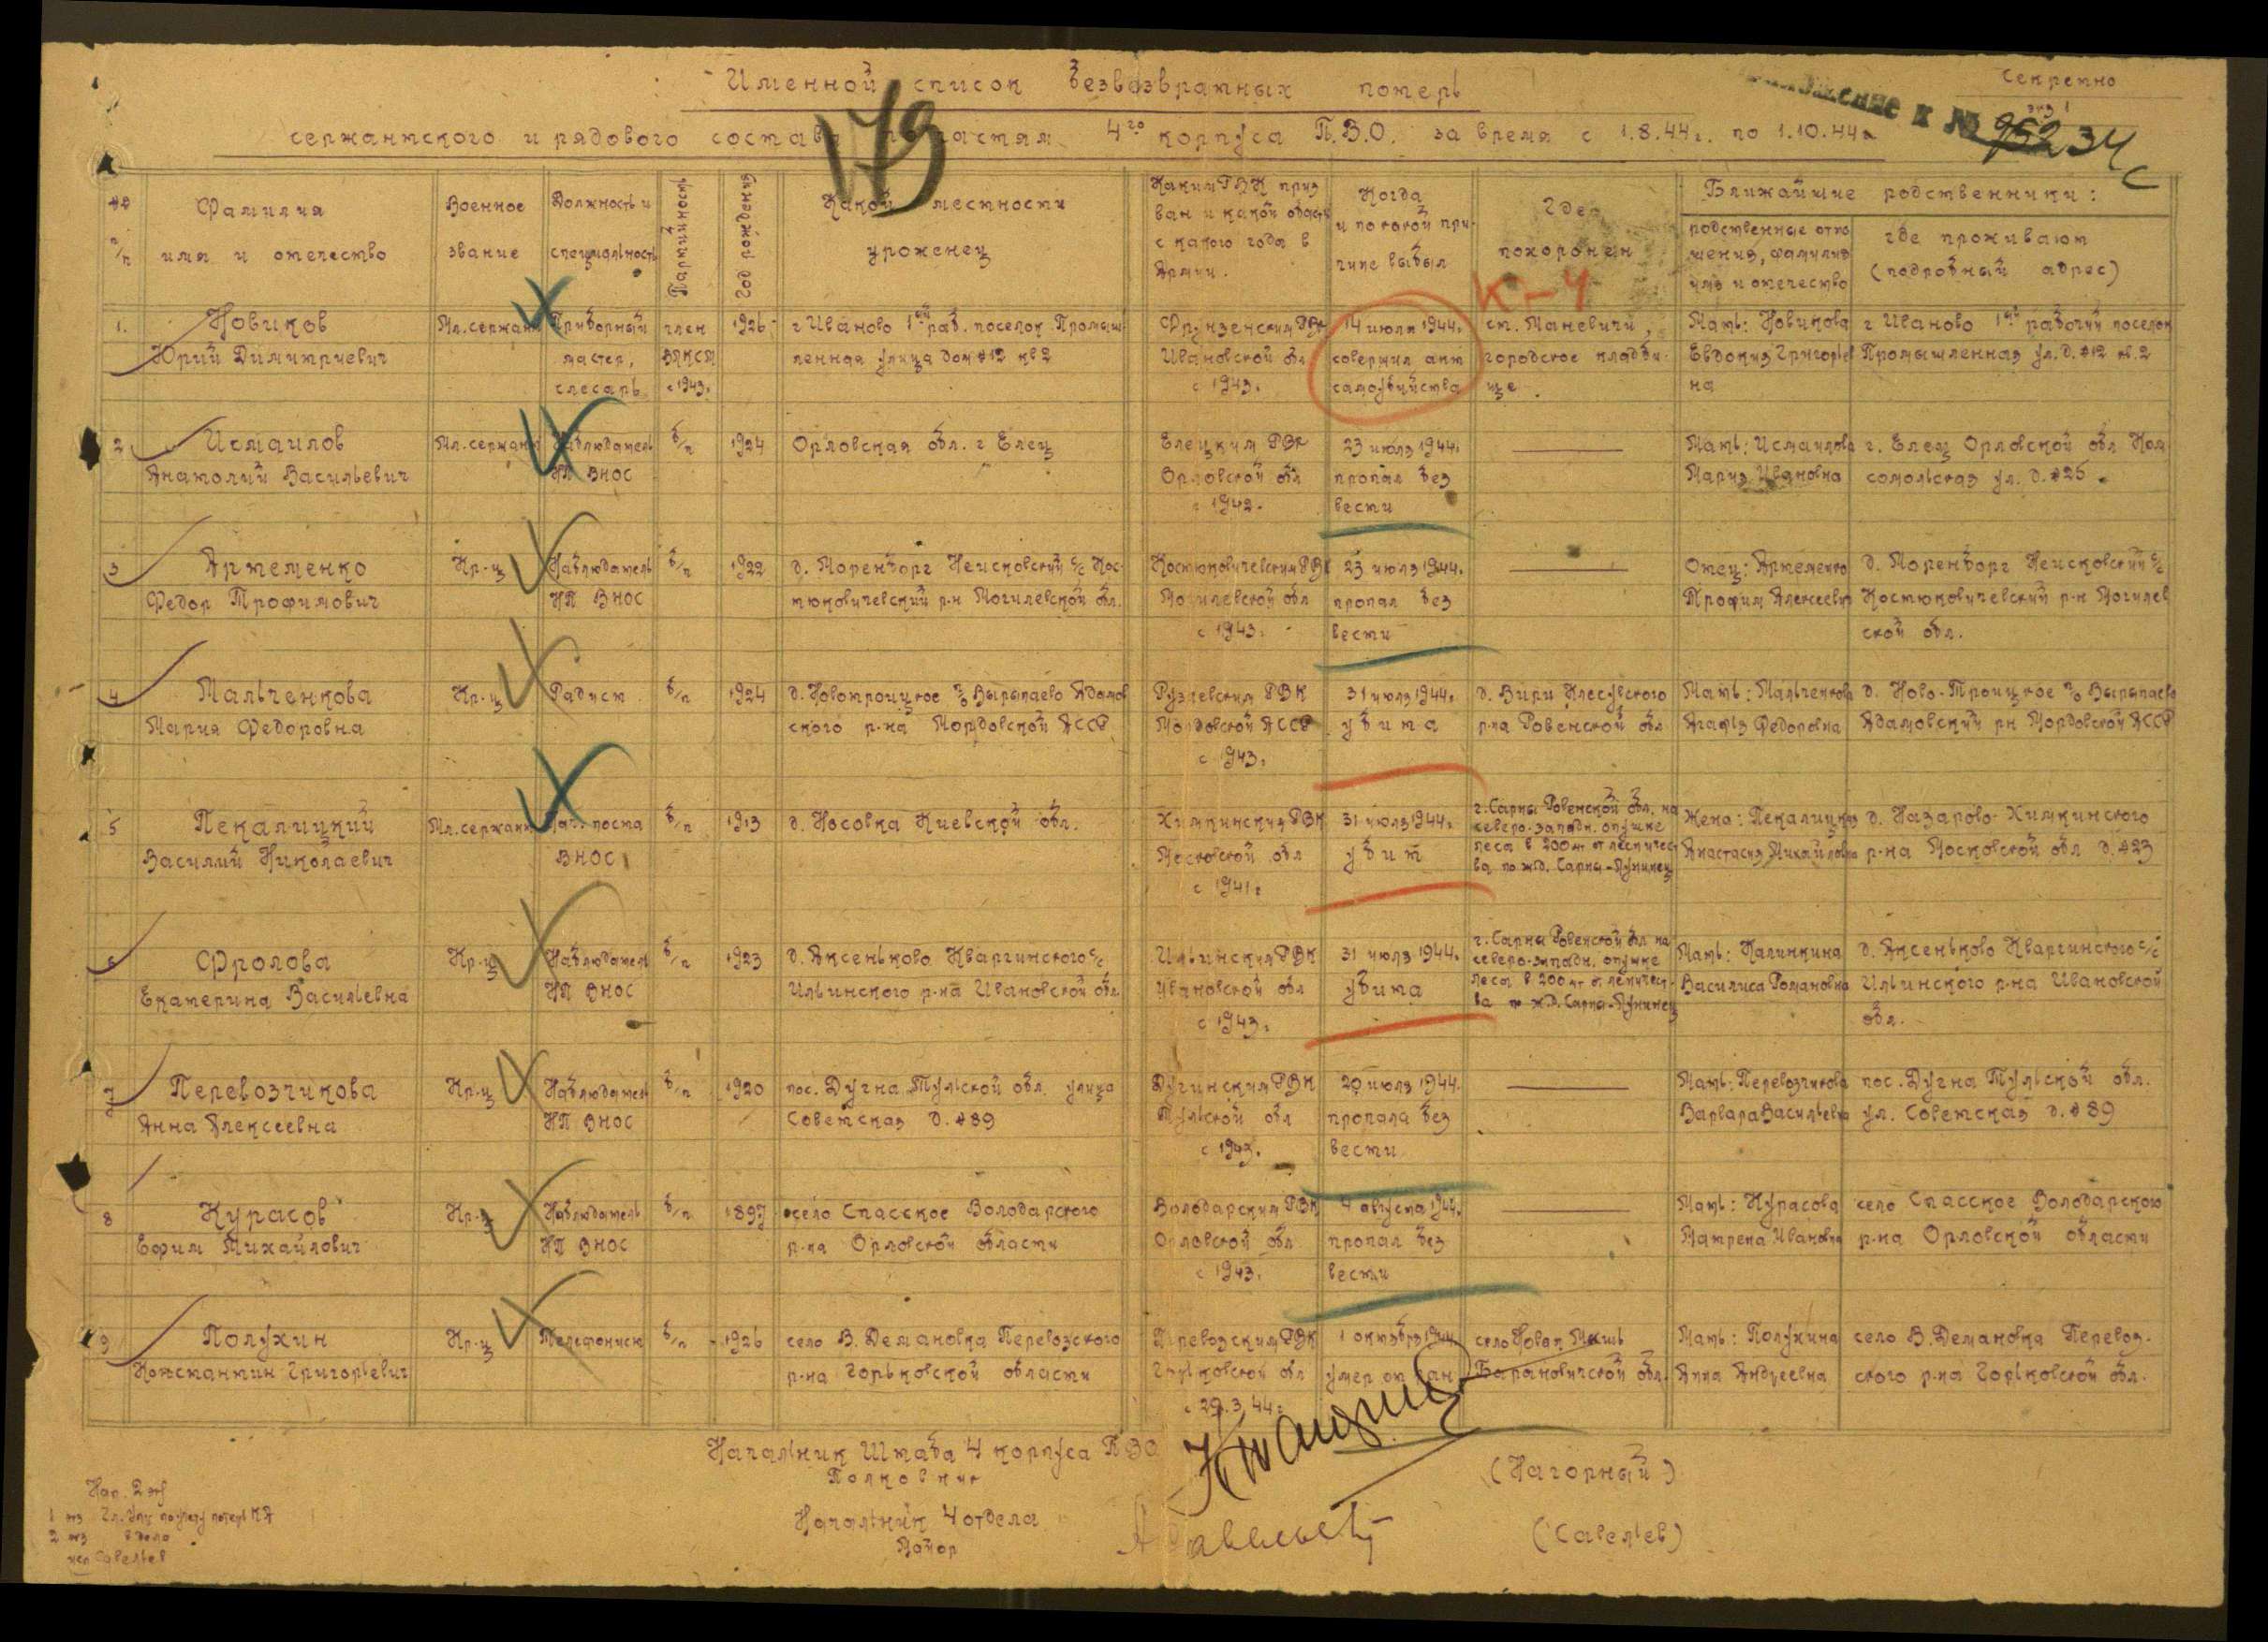 Именной список безвозвратных потерь
Секретно
экз 1
сержантского и рядового состава по частям 4го корпуса П.В.О. за время с 1.8.44г. по 1.10.44г
179
Приложение к № 95234с
№№ п/п
Фамилия имя и отчество
Военное звание
Должность и специальность
Партийность
Год рождения
Какой местности уроженец
Каким РВК приз
ван и какой области
с какого года в
Армии.
Когда
и по какой при
чине выбыл
Где
похоронен
К-4
Ближайшие родственники:
родственные отно
шения, фамилия
имя и отчество
где проживают
(подробный адрес)
1. Новиков Мл.сержант Приборный член 1926 г Иваново 1ый раб. поселок Промыш Фрунзенским РВК 14 июля 1944г. ст. Маневичи, Мать: Новикова г Иваново 1ый рабочий поселок
Юрий Димитриевич мастер, ВЛКСМ ленная улица дом №12 кв 2 Ивановской обл совершил акт городское кладби- Евдокия Григорьев Промышленная ул. д. №12 кв. 2
слесарь с 1943г. с 1943г. самоубийства ще. на
2 Исмаилов Мл.сержант Наблюдатель б/п 1924 Орловская обл. г Елец Елецким РВК 23 июля 1944г. — Мать: Исмаилова г. Елец Орловской обл Ком
Анатолий Васильевич НП ВНОС Орловской обл пропал без Мария Ивановна сомольская ул. д. №25.
с 1942г. вести
3 Артеменко Кр-ц Наблюдатель б/п 1922 д. Моренборг Неисковский с/с Кос- Костюковичевским РВК 23 июля 1944г. — Отец: Артеменко д. Моренборг Неисковский с/с
Федор Трофимович НП ВНОС тюковичевский р-н Могилевской обл. Могилевской обл пропал без Трофим Алексеевич Костюковичевский р-н Могилев
с 1943г. вести ской обл.
4 Мальченкова Кр-ц Радист б/п 1924 д. Новотроицкое п/о Вырыпаево Адамов Рузаевским РВК 31 июля 1944г. д. Вири Клесувского Мать: Мальченкова д. Ново-Троицкое п/о Вырыпаево
Мария Федоровна ского р-на Мордовской АССР Мордовской АССР убита р-на Ровенской обл Агафья Федоровна Адамовский рн Мордовской АССР
с 1943г.
5 Пекалицкий Мл.сержант Нач. поста б/п 1913 д. Носовка Киевской обл. Химкинским РВК 31 июля 1944г. г. Сарны Ровенской обл. на Жена: Пекалицкая д. Назарово-Химкинского
северо-западн. опушке
Василий Николаевич ВНОС Московской обл убит леса в 200 мт от лесничест- Анастасия Михайловна р-на Московской обл д. №23
с 1941г. ва по ж.д. Сарны-Лунинец
6 Фролова Кр-ц Наблюдатель б/п 1923 д. Аксеньково Кваргинского с/с Ильинским РВК 31 июля 1944г. г. Сарны Ровенской обл на Мать: Калинкина д. Аксеньково Кваргинского с/с
северо-западн. опушке
Екатерина Васильевна НП ВНОС Ильинского р-на Ивановской обл. Ивановской обл убита леса в 200 мт от лесничест- Василиса Романовна Ильинского р-на Ивановской
с 1943г. ва по ж.д. Сарны-Лунинец обл.
7 Перевозчикова Кр-ц Наблюдатель б/п 1920 пос. Дугна Тульской обл. улица Дугинским РВК 20 июля 1944г. — Мать: Перевозчикова пос. Дугна Тульской обл.
Анна Алексеевна НП ВНОС Советская д. №89 Тульской обл пропала без Варвара Васильевна ул. Советская д. №89
с 1943г. вести
8 Курасов Кр-ц Наблюдатель б/п 1897 село Спасское Володарского Володарским РВК 4 августа 1944г. — Мать: Курасова село Спасское Володарского
Ефим Михайлович НП ВНОС р-на Орловской области Орловской обл пропал без Матрена Ивановна р-на Орловской области
с 1943г. вести
9 Полухин Кр-ц Телефонист б/п 1926 село В. Демановка Перевозского Перевозским РВК 1 октября 1944 село Новая Мышь Мать: Полухина село В. Демановка Перевоз-
Константин Григорьевич р-на Горьковской области Горьковской обл умер от ран Барановичской обл. Анна Андреевна ского р-на Горьковской обл.
с 29.3.44г.
Начальник Штаба 4 корпуса ПВО
Полковник (Нагорный)
Начальник 4 отдела
Майор (Савельев)
Нап. 2 экз
1 экз Гл. Упр по учету потерь КА
2 экз в дело
исп Савельев